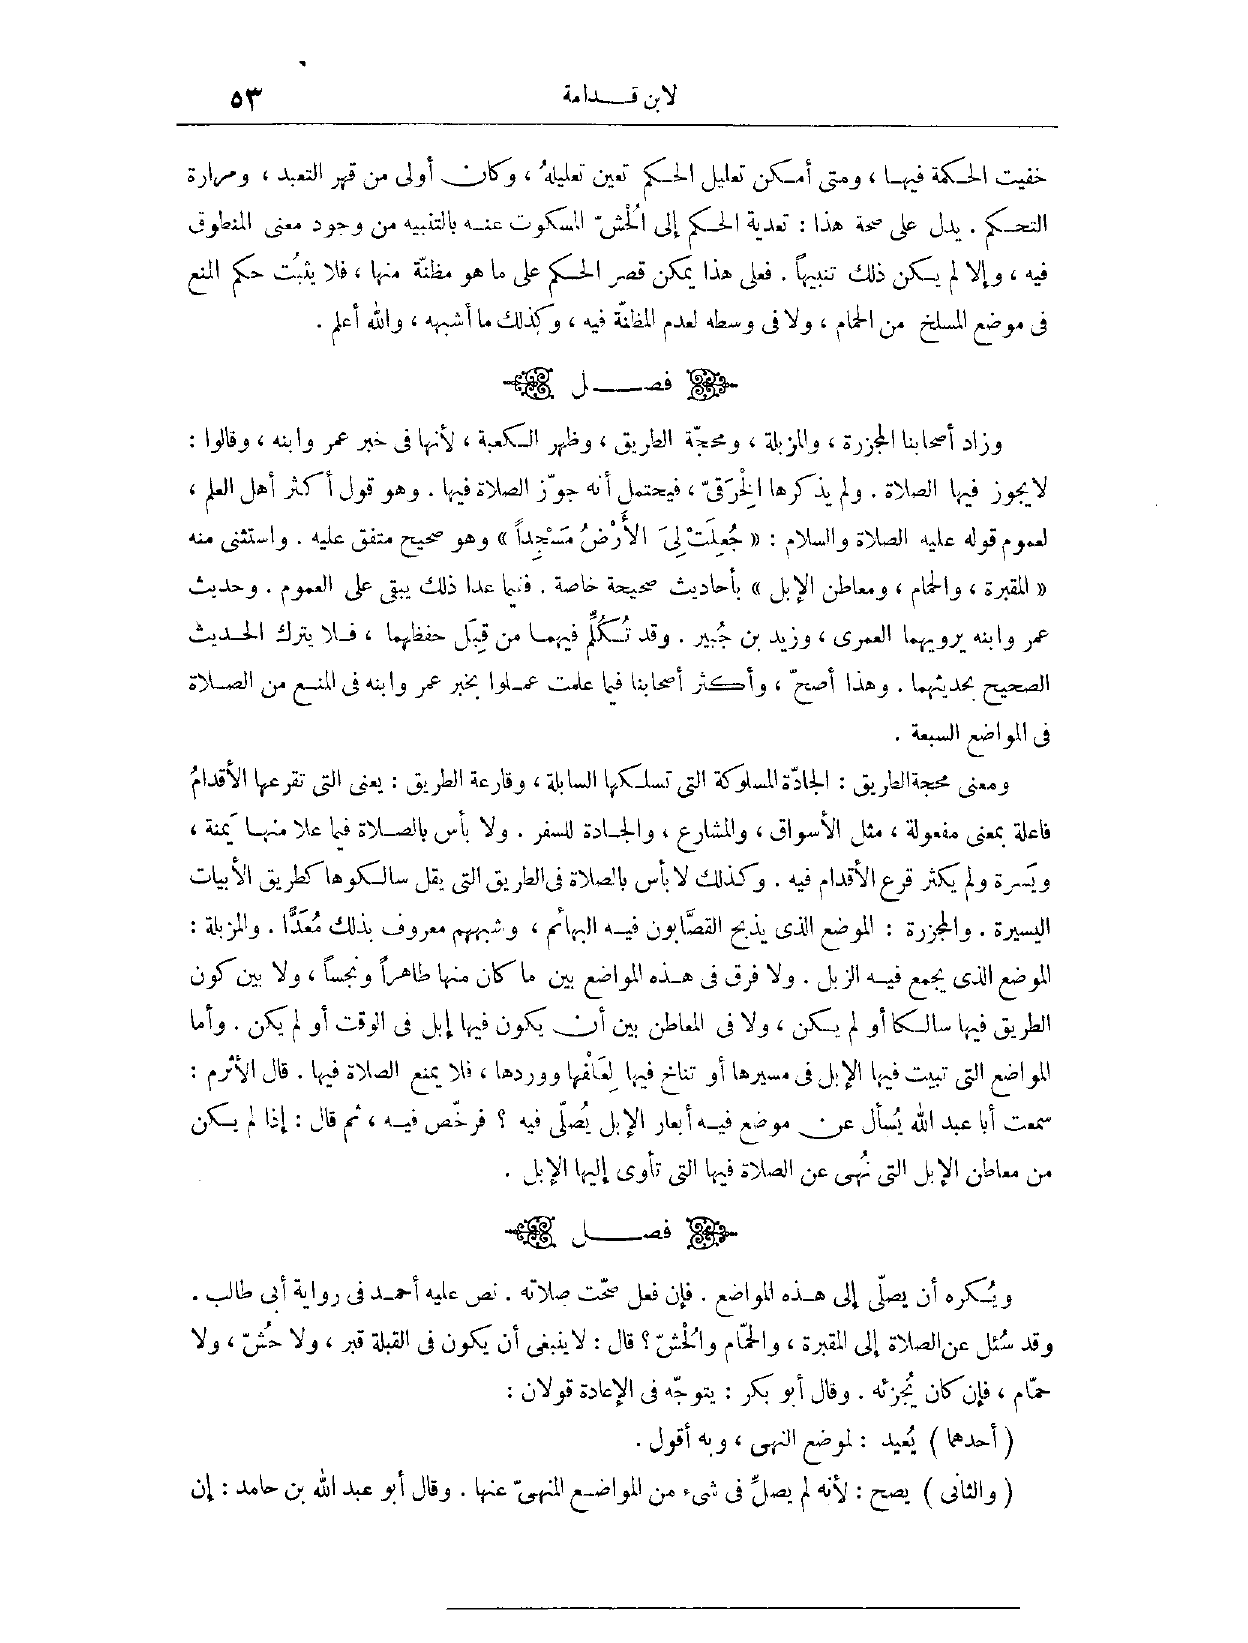 لابن قدامة ٥٣
خفيت الحكمة فيها ، ومتى أمكن تعليل الحكم تعين تعليلهُ ، وكان أولى من قهر التعبد ، ومرارة
التحكم . يدل على صحة هذا : تعدية الحكم إلى الحُشّ المسكوت عنه بالتنبيه من وجود معنى المنطوق
فيه ، وإلا لم يكن ذلك تنبيهاً . فعلى هذا يمكن قصر الحكم على ما هو مظنّة منها ، فلا يثبُت حكم المنع
فى موضع المسلخ من الحمام ، ولا فى وسطه لعدم المظنّة فيه ، وكذلك ما أشبهه ، والله أعلم .
فصل
وزاد أصحابنا المجزرة ، والمزبلة ، ومحجّة الطريق ، وظهر الكعبة ، لأنها فى خبر عمر وابنه ، وقالوا :
لا يجوز فيها الصلاة . ولم يذكرها الخِرَقىّ ، فيحتمل أنه جوّز الصلاة فيها . وهو قول أكثر أهل العلم ،
لعموم قوله عليه الصلاة والسلام : « جُعِلَتْ لِىَ الأَرْضُ مَسْجِداً » وهو صحيح متفق عليه . واستثنى منه
« المقبرة ، والحمام ، ومعاطن الإبل » بأحاديث صحيحة خاصة . فيما عدا ذلك يبقى على العموم . وحديث
عمر وابنه يرويهما العمرى ، وزيد بن جُبير . وقد تُكُلِّم فيهما من قِبَل حفظهما ، فلا يترك الحديث
الصحيح بحديثهما . وهذا أصحّ ، وأكثر أصحابنا فيما علمت عملوا بخبر عمر وابنه فى المنع من الصلاة
فى المواضع السبعة .
ومعنى محجة الطريق : الجادّة المسلوكة التى تسلكها السابلة ، وقارعة الطريق : يعنى التى تقرعها الأقدامُ
فاعلة بمعنى مفعولة ، مثل الأسواق ، والمشارع ، والجادة للسفر . ولا بأس بالصلاة فيما علا منها يَمنة ،
ويَسرة ولم يكثر قرع الأقدام فيه . وكذلك لا بأس بالصلاة فى الطريق التى يقل سالكوها كطريق الأبيات
اليسيرة . والمجزرة : الموضع الذى يذبح القصَّابون فيه البهائم ، وشبههم معروف بذلك مُعَدًّا . والمزبلة :
الموضع الذى يجمع فيه الزبل . ولا فرق فى هذه المواضع بين ما كان منها طاهراً ونجساً ، ولا بين كون
الطريق فيها سالكا أو لم يكن ، ولا فى المعاطن بين أن يكون فيها إبل فى الوقت أو لم يكن . وأما
المواضع التى تبيت فيها الإبل فى مسيرها أو تناخ فيها لِعَلْفها ووردها ، فلا يمنع الصلاة فيها . قال الأثرم :
سمعت أبا عبد الله يُسأل عن موضع فيه أبعار الإبل يُصلّى فيه ؟ فرخّص فيه ، ثم قال : إذا لم يكن
من معاطن الإبل التى نُهى عن الصلاة فيها التى تأوى إليها الإبل .
فصل
ويُكره أن يصلّى إلى هذه المواضع . فإن فعل صحّت صلاته . نص عليه أحمد فى رواية أبى طالب .
وقد سُئل عن الصلاة إلى المقبرة ، والحمّام والحُشّ ؟ قال : لا ينبغى أن يكون فى القبلة قبر ، ولا حُشّ ، ولا
حمّام ، فإن كان يُجزئه . وقال أبو بكر : يتوجّه فى الإعادة قولان :
( أحدها ) يُعيد : لموضع النهى ، وبه أقول .
( والثانى ) يصح : لأنه لم يصلِّ فى شىء من المواضع المنهىّ عنها . وقال أبو عبد الله بن حامد : إن